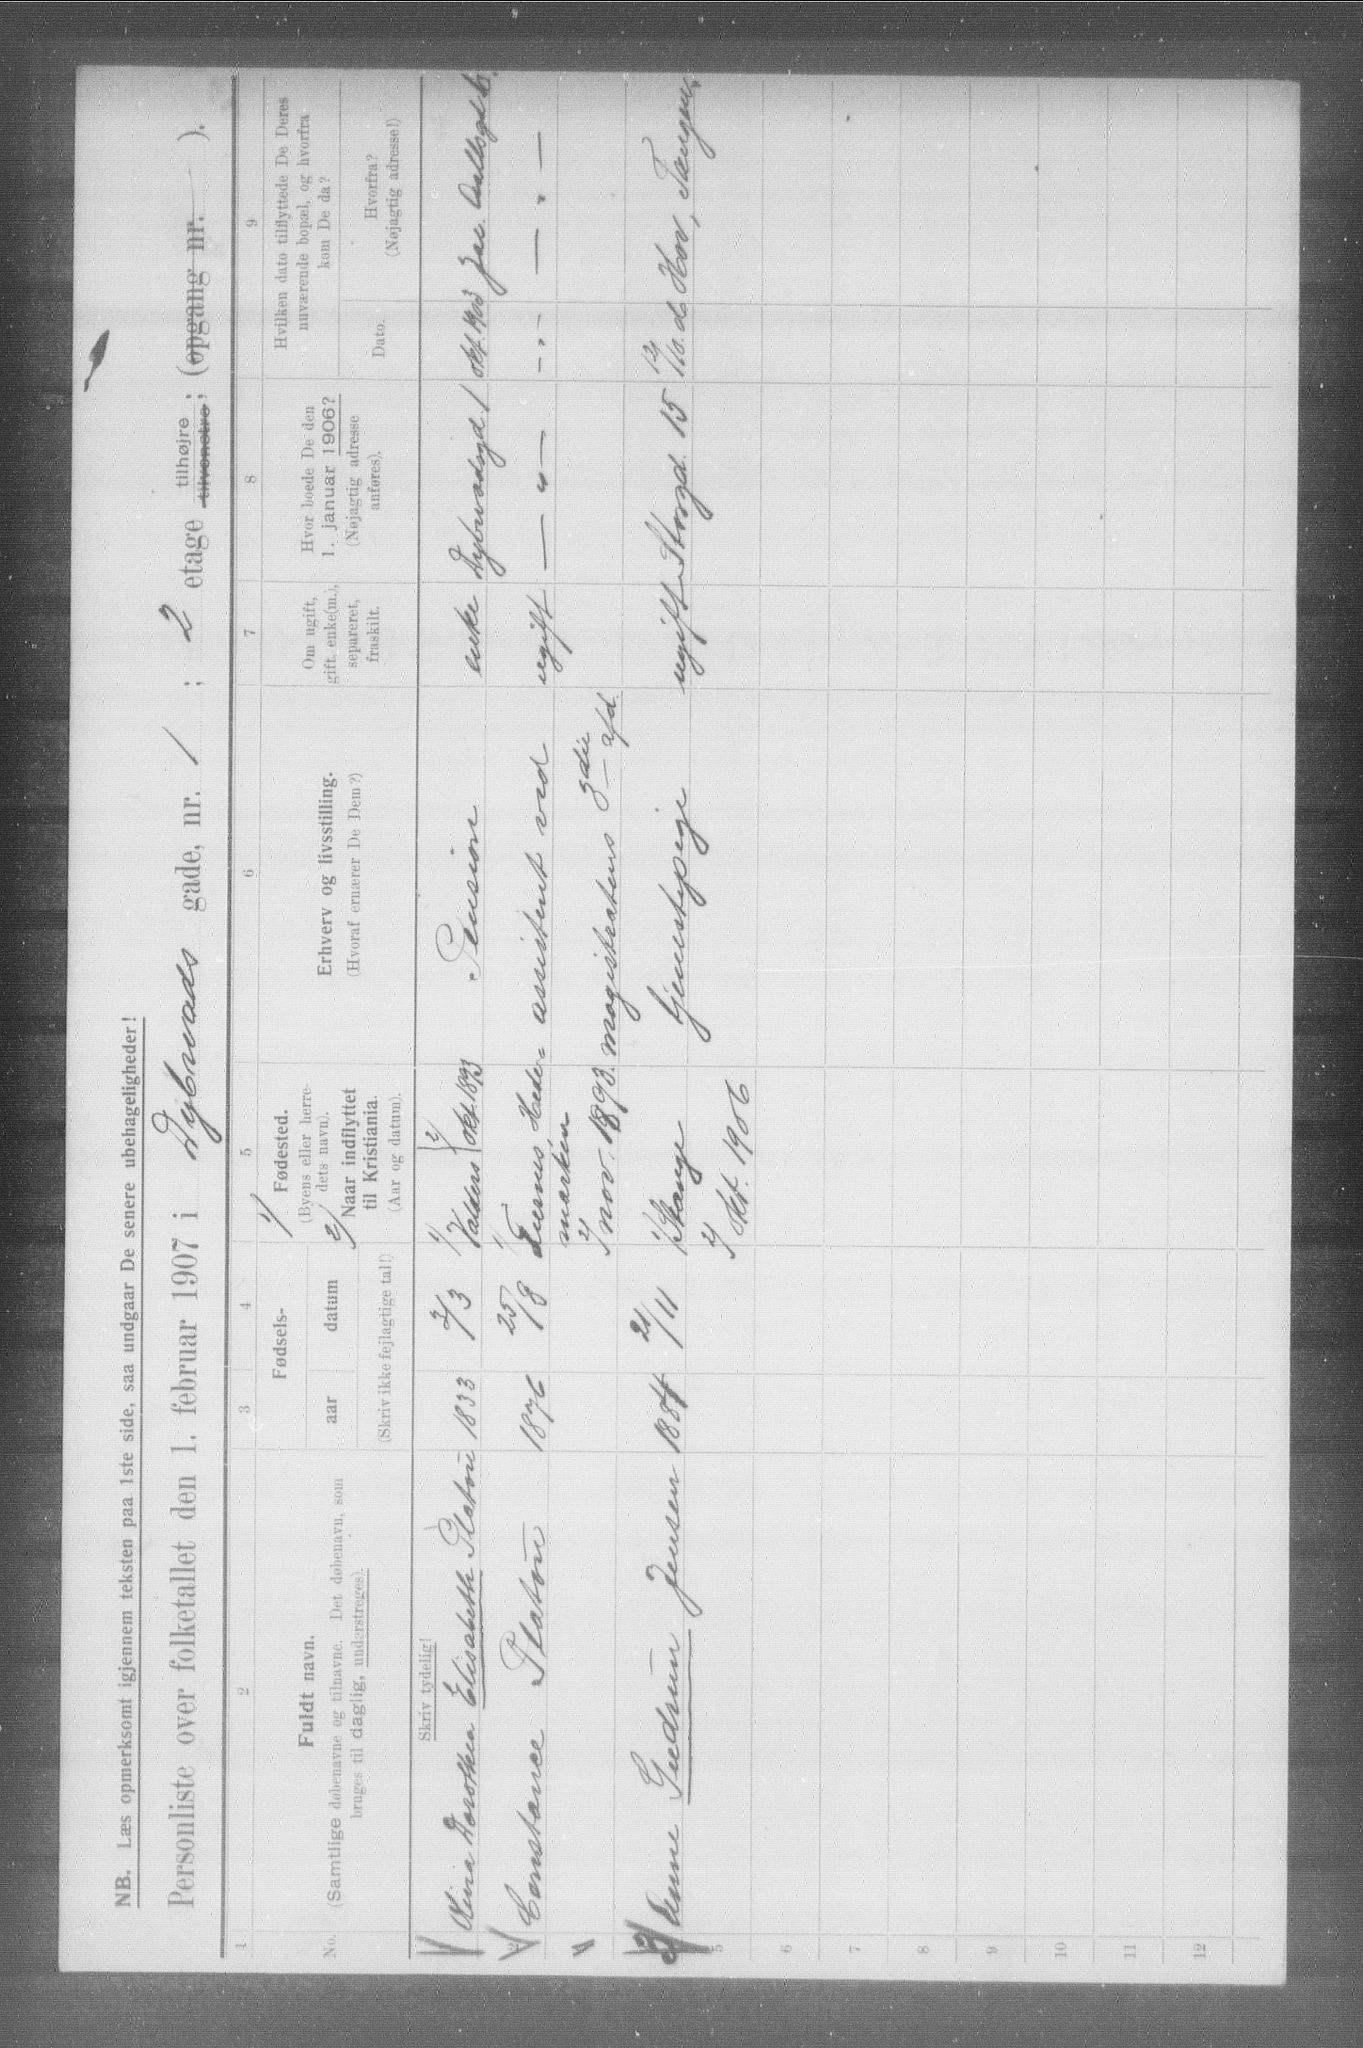 NB. Læs opmerksomt igjennem teksten paa 1ste side, saa undgaar De senere ubehageligheder!
Personliste over folketallet den 1. februar 1907 i Dybvads gade, nr. 1 ; 2 etage tilhøjre tilvenstre; (opgang nr. ).
1 2 3 4 5 6 7 8 9
No.
Fuldt navn.
(Samtlige døbenavne og tilnavne. Det døbenavn, som
bruges til daglig, understreges).
Fødsels-
aar datum
(Skriv ikke fejlagtige tal!)
1) Fødested.
(Byens eller herre-
dets navn).
2) Naar indflyttet
til Kristiania.
(Aar og datum).
Erhverv og livsstilling.
(Hvoraf ernærer De Dem?)
Om ugift,
gift, enke(m.),
separeret,
fraskilt.
Hvor boede De den
1. januar 1906?
(Nøjagtig adresse
anføres).
Hvilken dato tilflyttede De Deres
nuværende bopæl, og hvorfra
kom De da?
Dato.
Hvorfra?
(Nøjagtig adresse!)
Skriv tydelig!
Dorothea Elisabeth Platou 1833 2/3 1) Valders 2) okt. 1893 Pension enke Dybvadsgd 1 okt 1903
2 Constance Platou 1876 25/8 1) Hede- assistent ved ugift — " — - " - — " —
marken
2) nov. 1893. magistratens 3die afd.
3) Anne Gudrun Jensen 1884 21/11 1) Stange tjenestepige ugift Storgd. 15 Hov, Tangen,
2) okt. 1906
5
6
7
8
9
10
11
12